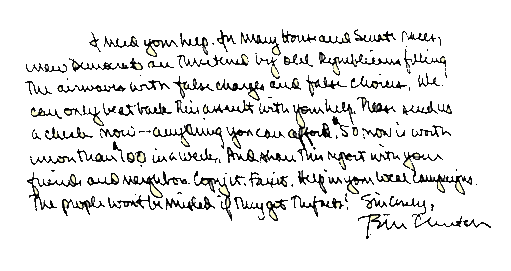 I need your help. In many House and Senate races,
new Democrats are threatened by old Republicans filling
the airwaves with false charges and false choices. We
can only beat back this assault with your help. Please send us
a check now -- anything you can afford. $50 now is worth
more than $100 in a week. And share this report with your
friends and neighbors. Copy it. Fax it. Help in your local campaigns.
The people won't be misled if they get the facts! Sincerely,
Bill Clinton